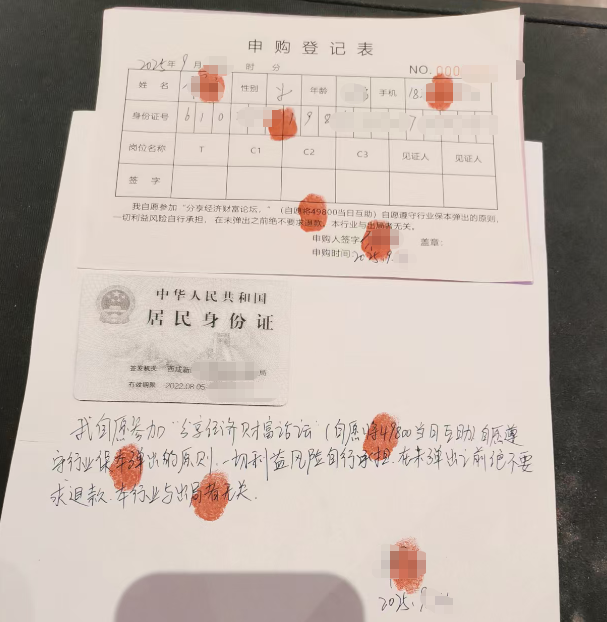 申购登记表
2025年9月 时 分
NO.000
姓名 性别 女 年龄 手机 18
身份证号 610 198 7
岗位名称 T C1 C2 C3 见证人 见证人
签字
我自愿参加“分享经济财富论坛，”（自愿将49800当日互助）自愿遵守行业保本弹出的原则，
一切利益风险自行承担，在未弹出之前绝不要求退款，本行业与出局者无关。
申购人签字 盖章：
申购时间：2025.9.
中华人民共和国
居民身份证
签发机关 西咸新 局
有效期限 2022.08.05
我自愿参加“分享经济财富论坛”（自愿将49800当日互助）自愿遵
守行业保本弹出的原则，一切利益风险自行承担.在未弹出之前绝不要
求退款.本行业与出局者无关.
2025.9